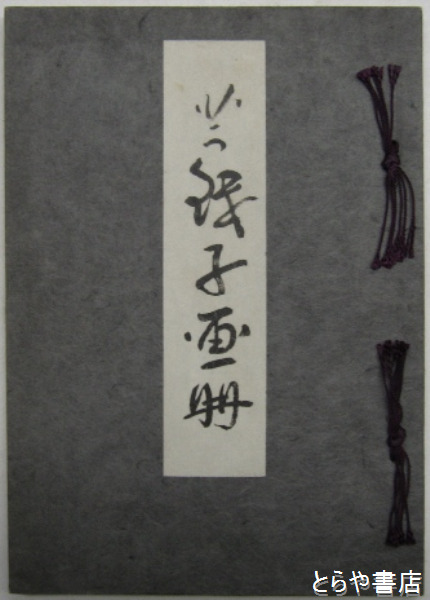 芋銭子画冊
とらや書店